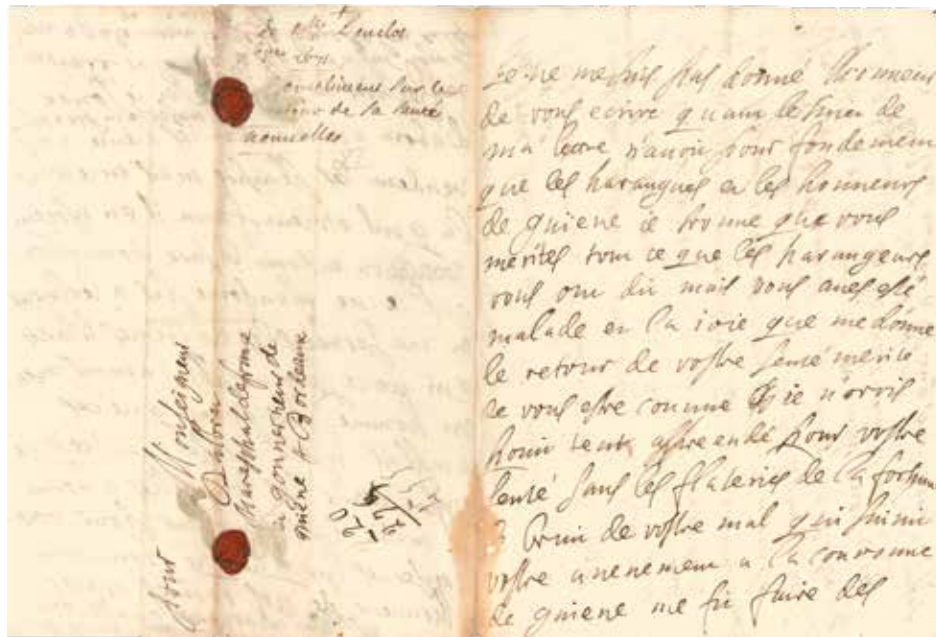 de Mlle Lenclos
1671
compliment sur le
retour de la santé
nouvelles
pour Monseigneur
Dalbret
mareschal de france
gouverneur de
guiene A Bordeaux
20
Je ne me suis pas donné lhonneur
de vous ecrire quant le suiet de
ma letre n'avoit pour fondement
que les harangues et les honneurs
de guiene ie trouve que vous
merites tout ce que les harangeurs
vous ont dit mais vous aves esté
malade et la ioie que me donne
le retour de vostre senté merite
de vous estre connue ie n'avois
point apreendé pour vostre
senté sans les flateries de la fortune
le bruit de vostre mal qui suivit
vostre avenement a la couronne
de guiene me fit faire des